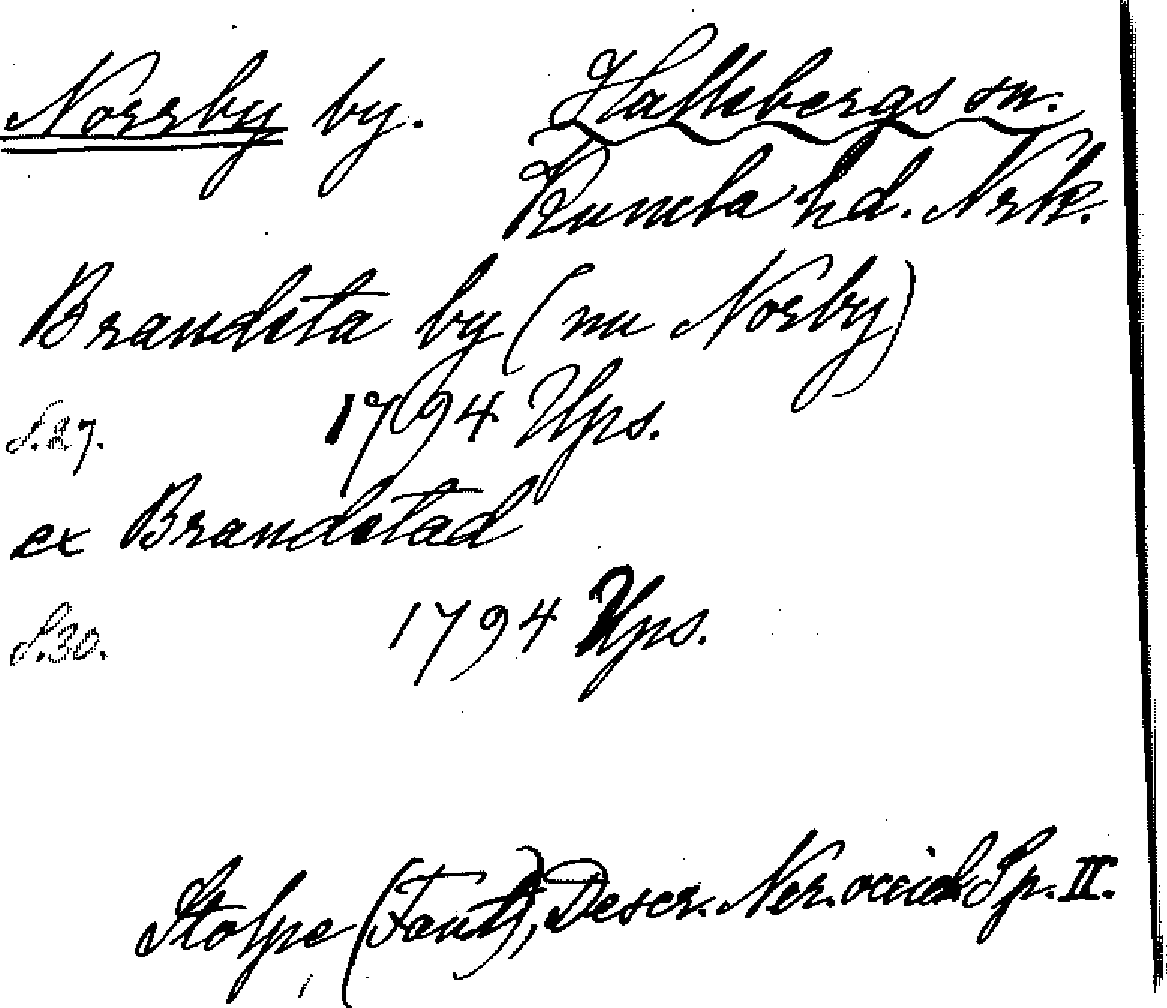 Norrby by. Hallsbergs sn.
Kumla hd. Nrk.
Brandsta by (nu Norby)
S.27. 1794 Ups.
ex Brandstad
S.30. 1794 Ups.
Stolpe (Fant), Descr. Ner. occid. Sp. II.